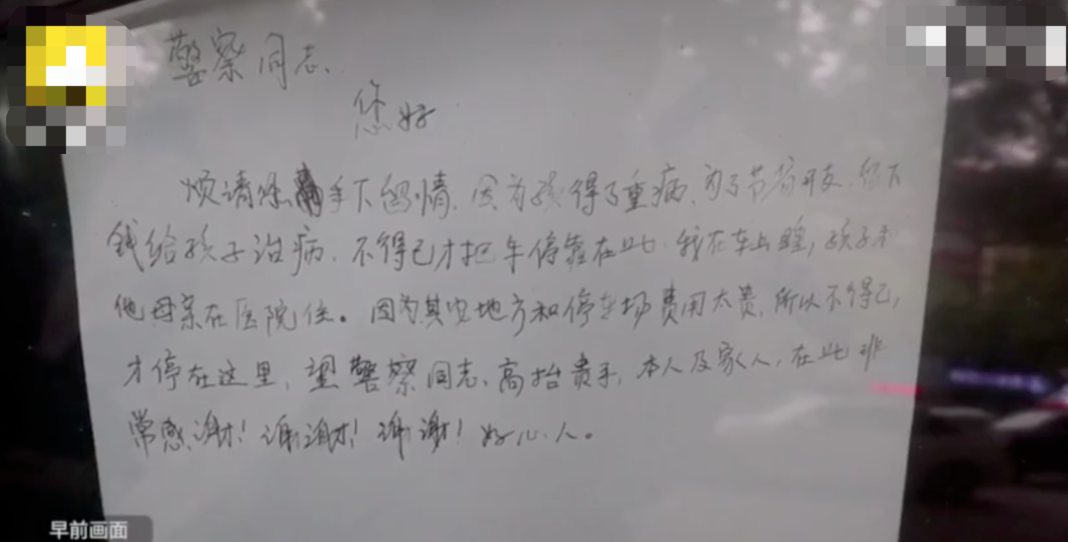 警察同志、
您好
烦请您手下留情.因为孩得了重病.为了节省开支.留下
钱给孩子治病.不得已才把车停靠在此.我在车上睡,孩子和
他母亲在医院住。因为其它地方和停车场费用太贵,所以不得已,
才停在这里,望警察同志、高抬贵手,本人及家人,在此非
常感谢!谢谢!谢谢!好心人。
早前画面